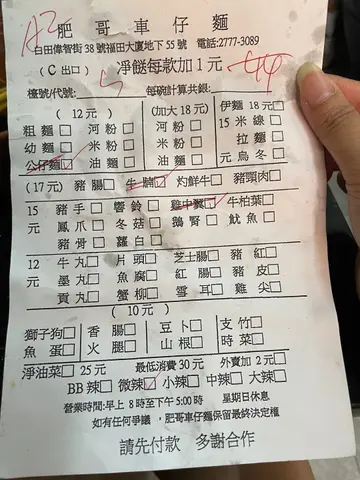 A2
肥哥車仔麵
白田偉智街38號福田大廈地下55號 電話:2777-3089
(C出口) 淨餸每款加1元 44
檯號/代號: 5 每碗計算共銀:
(12元) (加大18元) 伊麵18元□
粗麵□ 河粉□ 河粉□ 15米線□
幼麵□ 米粉□ 米粉□ 拉麵□
公仔麵□ 油麵□ 油麵□ 元烏冬□
(17元) 豬腸□ 牛腩□ 灼鮮牛□ 豬頸肉□
15 豬手□ 響鈴□ 雞中翼□ 牛柏葉□
元 鳳爪□ 冬菇□ 鵝腎□ 魷魚□
豬骨□ 蘿白□
12 牛丸□ 片頭□ 芝士腸□ 豬紅□
元 墨丸□ 魚腐□ 紅腸□ 豬皮□
貢丸□ 蟹柳□ 雪耳□ 雞尖□
(10元)
獅子狗□ 香腸□ 豆卜□ 支竹□
魚蛋□ 火腿□ 山根□ 時菜□
淨油菜□ 25元 最低消費30元 外賣加2元□
BB辣□ 微辣□ 小辣□ 中辣□ 大辣□
營業時間:早上8時至下午5:00時 星期日休息
如有任何爭議,肥哥車仔麵保留最終決定權
請先付款 多謝合作